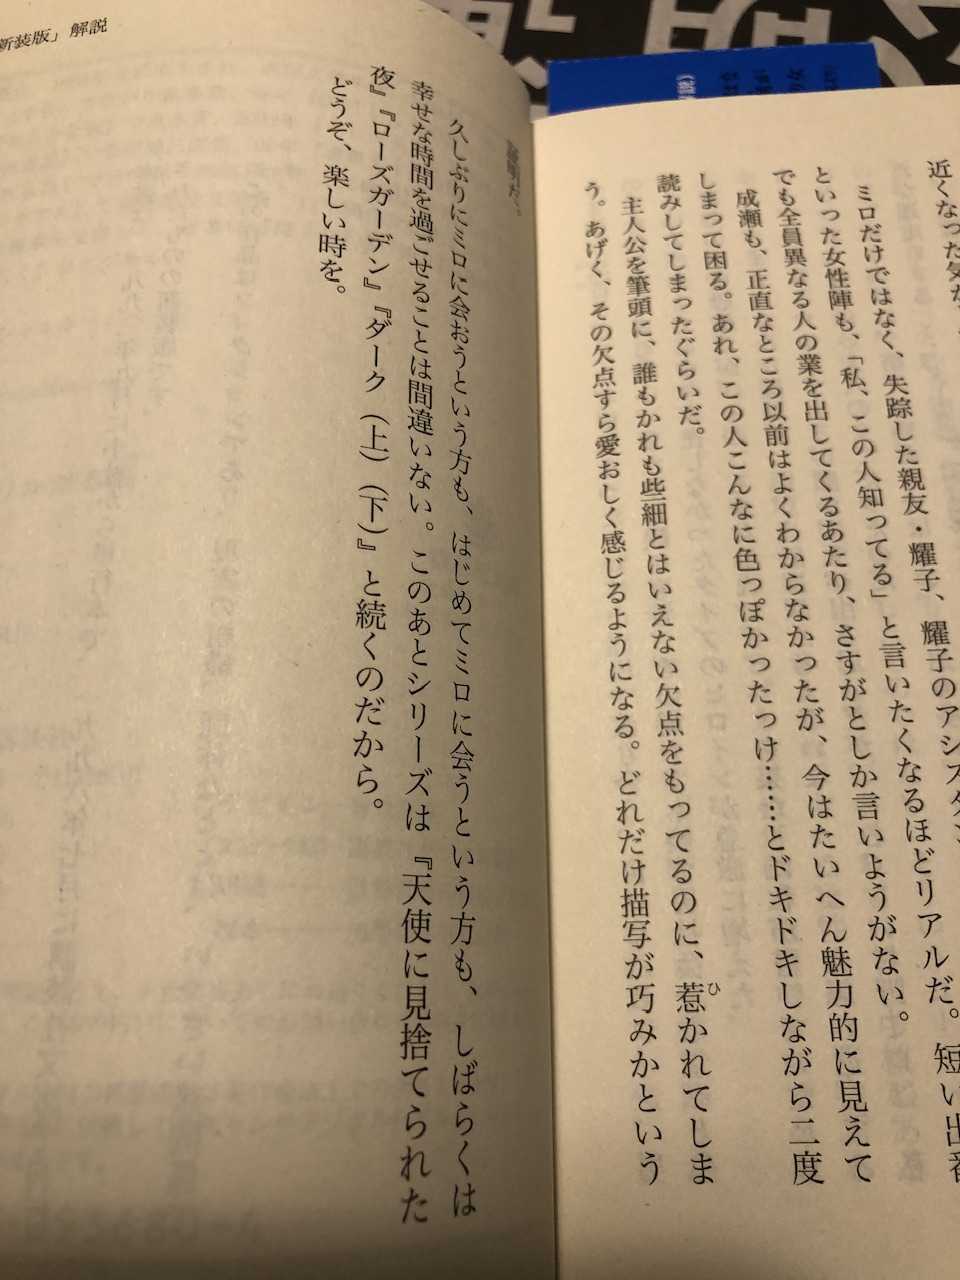 近くなった気が
ミロだけではなく、失踪した親友・耀子、耀子のアシスタン
といった女性陣も、「私、この人知ってる」と言いたくなるほどリアルだ。短い出番
でも全員異なる人の業を出してくるあたり、さすがとしか言いようがない。
成瀬も、正直なところ以前はよくわからなかったが、今はたいへん魅力的に見えて
しまって困る。あれ、この人こんなに色っぽかったっけ……とドキドキしながら二度
読みしてしまったぐらいだ。
主人公を筆頭に、誰もかれも些細とはいえない欠点をもってるのに、惹かれてしま
ひ
う。あげく、その欠点すら愛おしく感じるようになる。どれだけ描写が巧みかという
証明だ。
久しぶりにミロに会おうという方も、はじめてミロに会うという方も、しばらくは
幸せな時間を過ごせることは間違いない。このあとシリーズは『天使に見捨てられた
夜』『ローズガーデン』『ダーク（上）（下）』と続くのだから。
どうぞ、楽しい時を。
新装版」解説